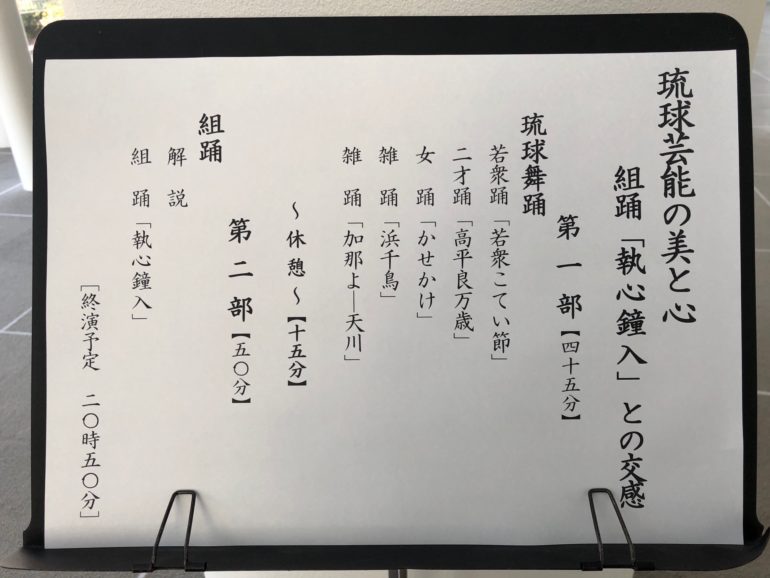 琉球芸能の美と心
組踊「執心鐘入」との交感
第一部【四十五分】
琉球舞踊
若衆踊「若衆こてい節」
二才踊「高平良万歳」
女踊「かせかけ」
雑踊「浜千鳥」
雑踊「加那よー天川」
～休憩～【十五分】
第二部【五〇分】
組踊
解説
組踊「執心鐘入」
［終演予定 二〇時五〇分］